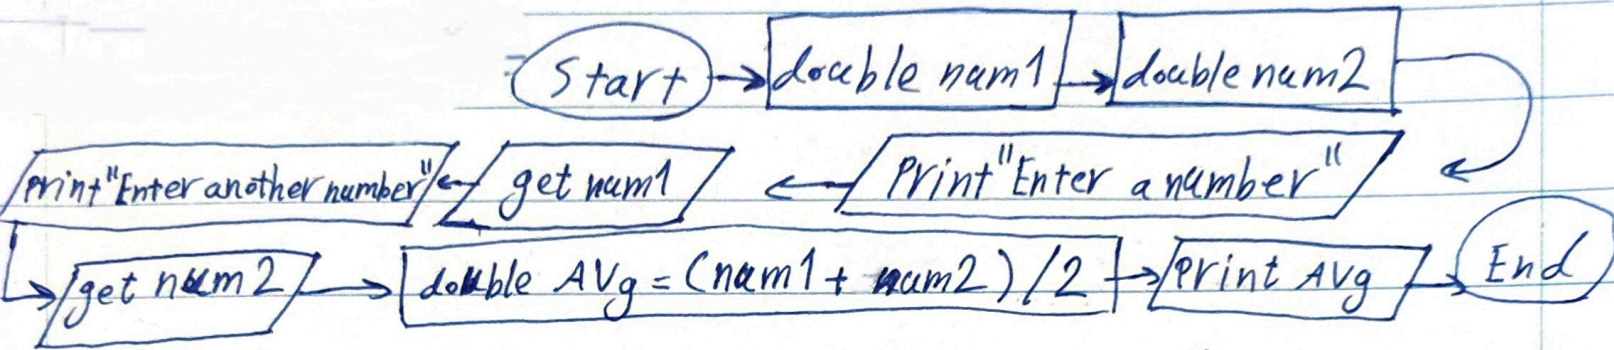 Start double num1 double num2
print "Enter another number" get num1 Print "Enter a number"
get num2 double AVg = (num1 + num2) / 2 print AVg End